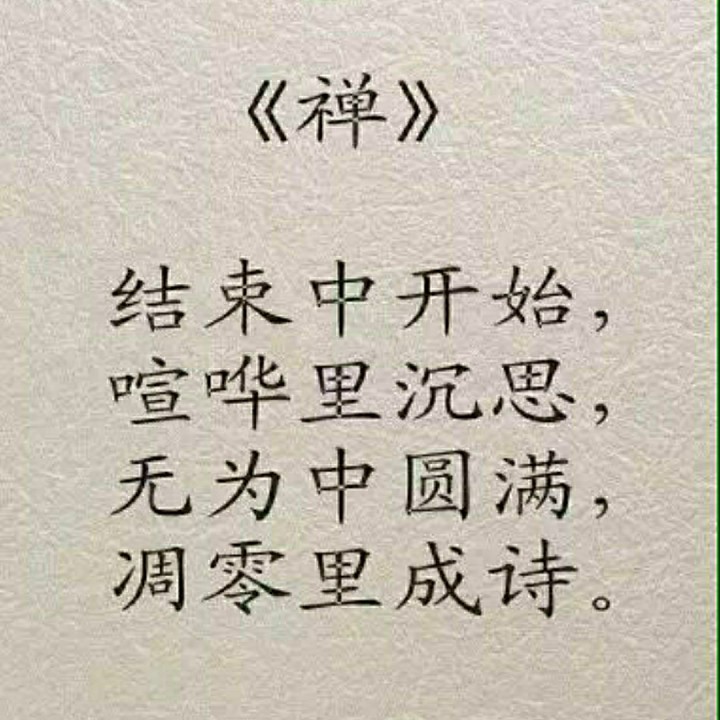 《禅》
结束中开始，
喧哗里沉思，
无为中圆满，
凋零里成诗。